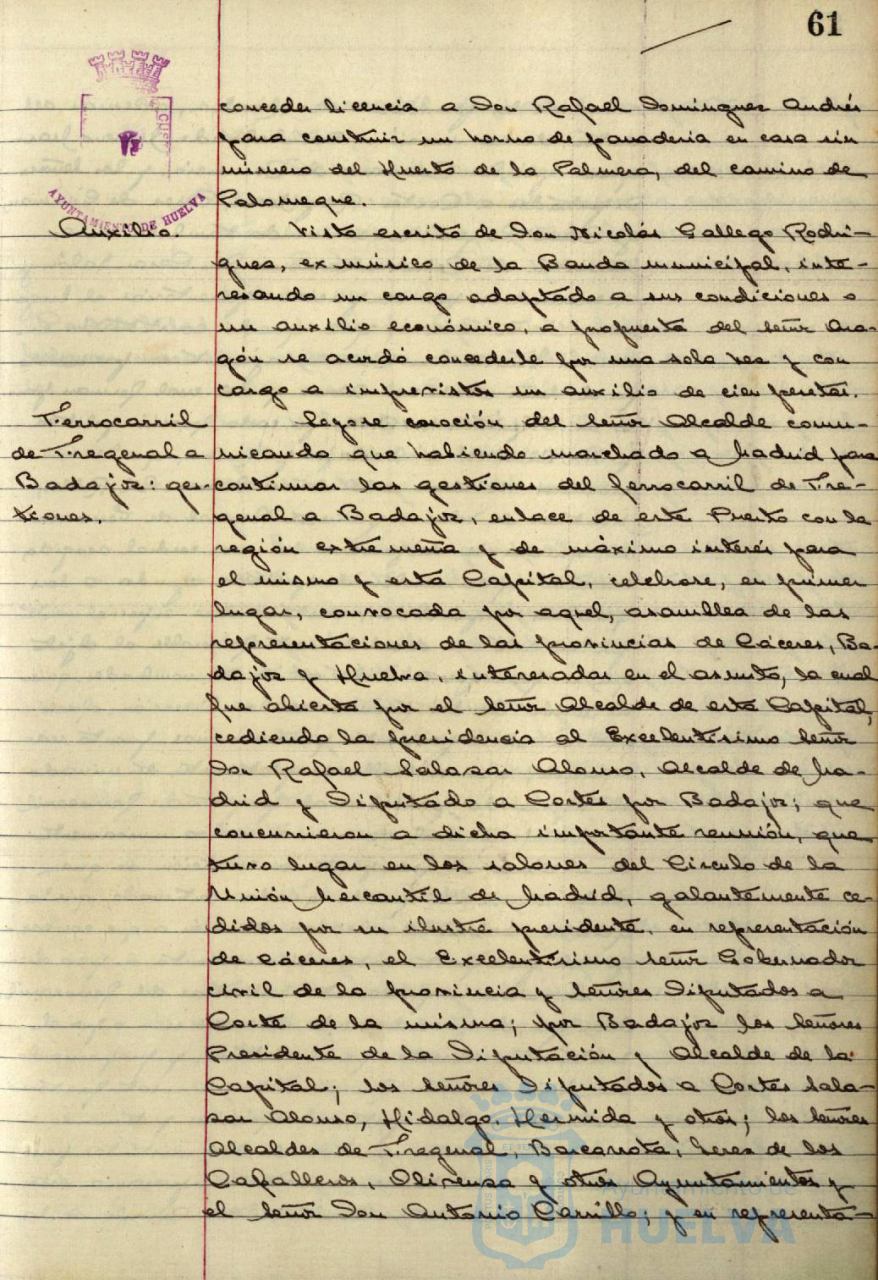 61
AYUNTAMIENTO DE HUELVA
conceder licencia a Don Rafael Domínguez Andrés
para construir un horno de panadería en casa sin
número del Huerto de la Palmera, del camino de
Palomeque.
Auxilio.
Visto escrito de Don Nicolás Gallego Rodrí-
guez, ex músico de la Banda municipal, inte-
resando un cargo adaptado a sus condiciones o
un auxilio económico, a propuesta del señor Ara-
gón se acordó concederle por una sola vez y con
cargo a imprevistos un auxilio de cien pesetas.
Ferrocarril
de Fregenal a
Badajoz: ges-
tiones.
Leyose moción del señor Alcalde comu-
nicando que habiendo marchado a Madrid para
continuar las gestiones del ferrocarril de Fre-
genal a Badajoz, enlace de este Puerto con la
región extremeña y de máximo interés para
el mismo y esta Capital, celebrose, en primer
lugar, convocada por aquel, asamblea de las
representaciones de las provincias de Cáceres, Ba-
dajoz y Huelva, interesadas en el asunto, la cual
fue abierta por el señor Alcalde de esta Capital,
cediendo la presidencia al Excelentísimo señor
Don Rafael Salazar Alonso, Alcalde de Ma-
drid y Diputado a Cortes por Badajoz; que
concurrieron a dicha importante reunión, que
tuvo lugar en los salones del Círculo de la
Unión Mercantil de Madrid, galantemente ce-
didos por su ilustre presidente, en representación
de Cáceres, el Excelentísimo señor Gobernador
civil de la provincia y señores Diputados a
Corte de la misma; por Badajoz los señores
Presidente de la Diputación y Alcalde de la
Capital; los señores Diputados a Cortes Sala-
zar Alonso, Hidalgo, Hermida y otros; los señores
Alcaldes de Fregenal, Barcarrota, Jerez de los
Caballeros, Olivenza y otros Ayuntamientos y
el señor Don Antonio Carrillo; y en representa-
HUELVA